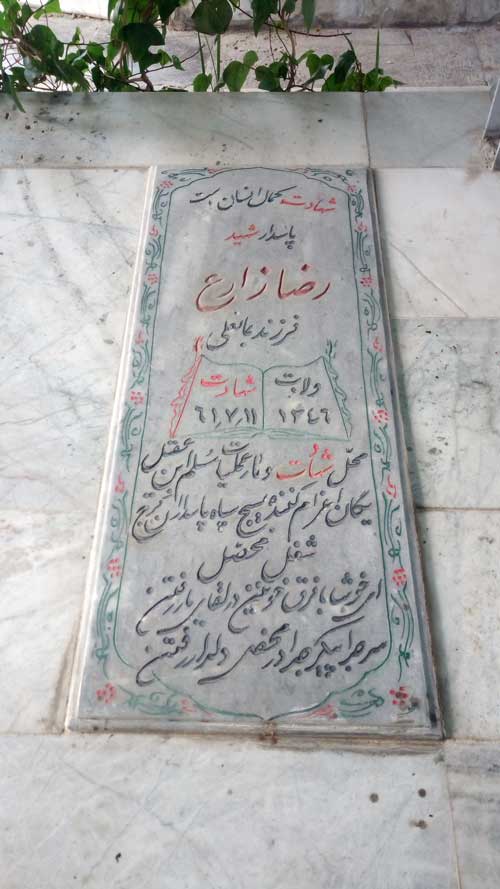 شهادت کمال انسان است
پاسدار شهید
رضا زارع
فرزند بمانعلی
ولادت شهادت
۱۳۴۶ ۶۱,۷,۱۱
محل شهادت و نام عملیات مسلم ابن عقیل
یگان اعزام کننده بسیج سپاه پاسداران
شغل محصل
ای خوشا با فرق خونین در لقای یار رفتن
سر جدا پیکر جدا در محفل دلدار رفتن